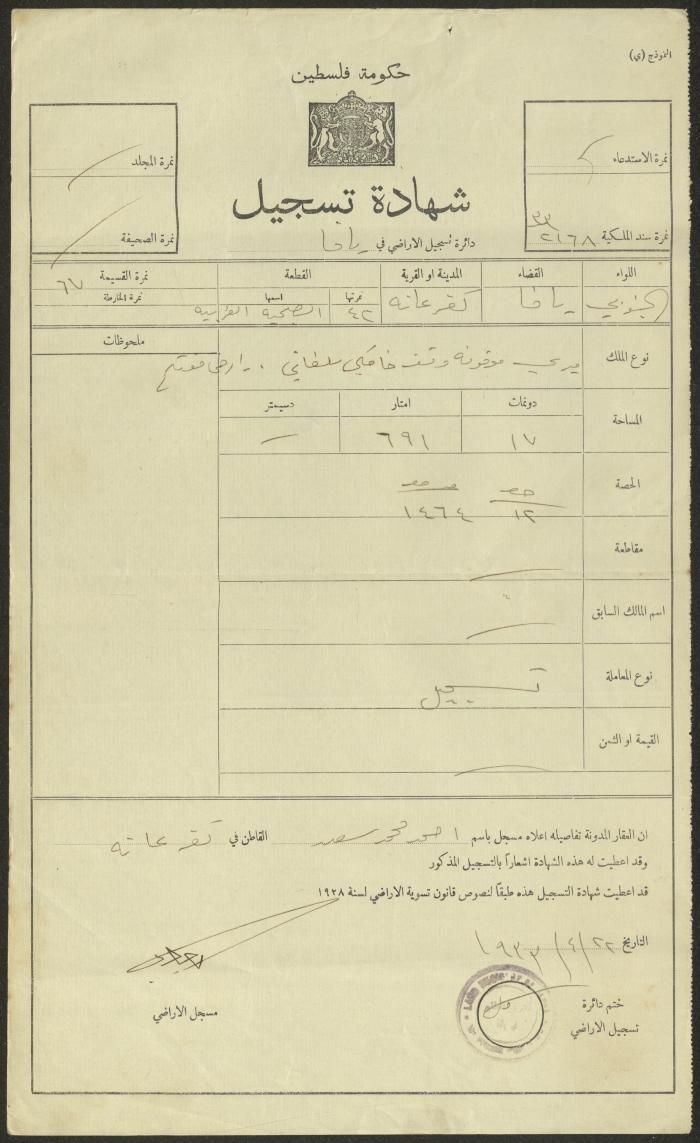 النموذج (ي)
حكومة فلسطين
نمرة الاستدعاء
نمرة المجلد
شهادة تسجيل
نمرة سند الملكية ٣٣ / ٢١٦٨
نمرة الصحيفة
دائرة تسجيل الاراضي في يافا
اللواء القضاء المدينة او القرية القطعة نمرة القسيمة ٦٧
نمرتها اسمها نمرة الخارطة
الجنوبي يافا كفرعانه ٤٢ الغربيه
نوع الملك ميري موقوفه وقف خاصكي سلطاني
ملحوظات
دونمات امتار دسيمتر
المساحة ١٧ ٦٩١ —
الحصة
١٢ ١٤٦٤
مقاطعة
اسم المالك السابق
نوع المعاملة تسجيل
القيمة او الثمن
ان العقار المدونة تفاصيله اعلاه مسجل باسم احمد محمد سعد القاطن في كفرعانه
وقد اعطيت له هذه الشهادة اشعاراً بالتسجيل المذكور
قد اعطيت شهادة التسجيل هذه طبقًا لنصوص قانون تسوية الاراضي لسنة ١٩٢٨
التاريخ ٢٢/٤/١٩٣٣
ختم دائرة
تسجيل الاراضي
مسجل الاراضي
LAND